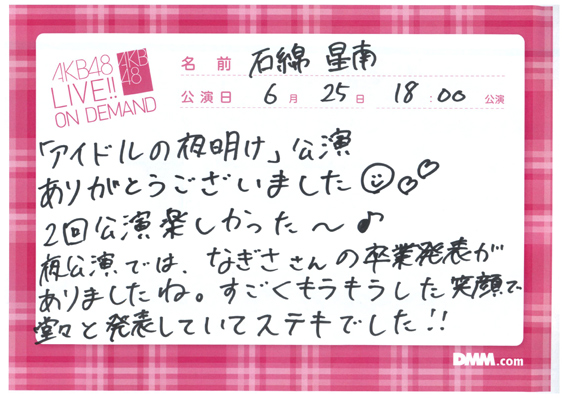 AKB48
LIVE!!
ON DEMAND
AKB
48
名前 石綿 星南
公演日 6月 25日 18:00 公演
「アイドルの夜明け」公演
ありがとうございました
2回公演楽しかった〜♪
夜公演では、なぎささんの卒業発表が
ありましたね。すごくもうもうした笑顔で
堂々と発表していてステキでした!!
DMM.com